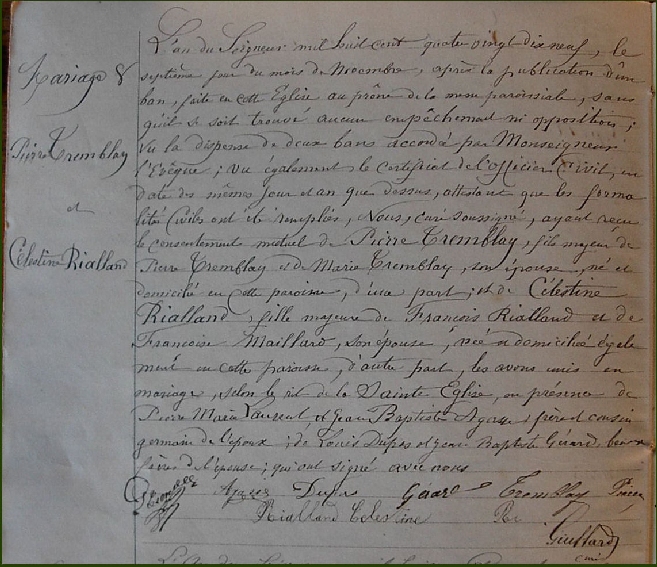 Mariage
Pierre Tremblay
et
Célestine Rialland
L'an du Seigneur mil huit cent quatre vingt dix neuf, le
septième jour du mois de Novembre, après la publication d'un
ban, faite en cette Eglise au prône de la messe paroissiale, sans
qu'il se soit trouvé aucun empêchement ni opposition;
Vu la dispense de deux bans accordé par Monseigneur
l'Evêque; Vu également le certificat de l'officier Civil, en
date des mêmes jour et an que dessus, attestant que les forma
lités Civiles ont été remplies, Nous, curé soussigné, ayant reçu
le consentement mutuel de Pierre Tremblay, fils majeur de
Pierre Tremblay et de Marie Tremblay, son épouse, né et
domicilié en cette paroisse, d'une part; et de Célestine
Rialland, fille majeure de François Rialland et de
Françoise Maillard, son épouse, née et domiciliée égale
ment en cette paroisse, d'autre part, les avons unis en
mariage, selon le rit de la Sainte Eglise, en présence de
Pierre Marie Laurent, et Jean Baptiste frère et cousin
germain de l'époux; de Louis Dupes et Jean Baptiste Gérard, beaux
frères de l'épouse; qui ont signé avec nous
Tremblay Pierre
Rialland Célestine
curé